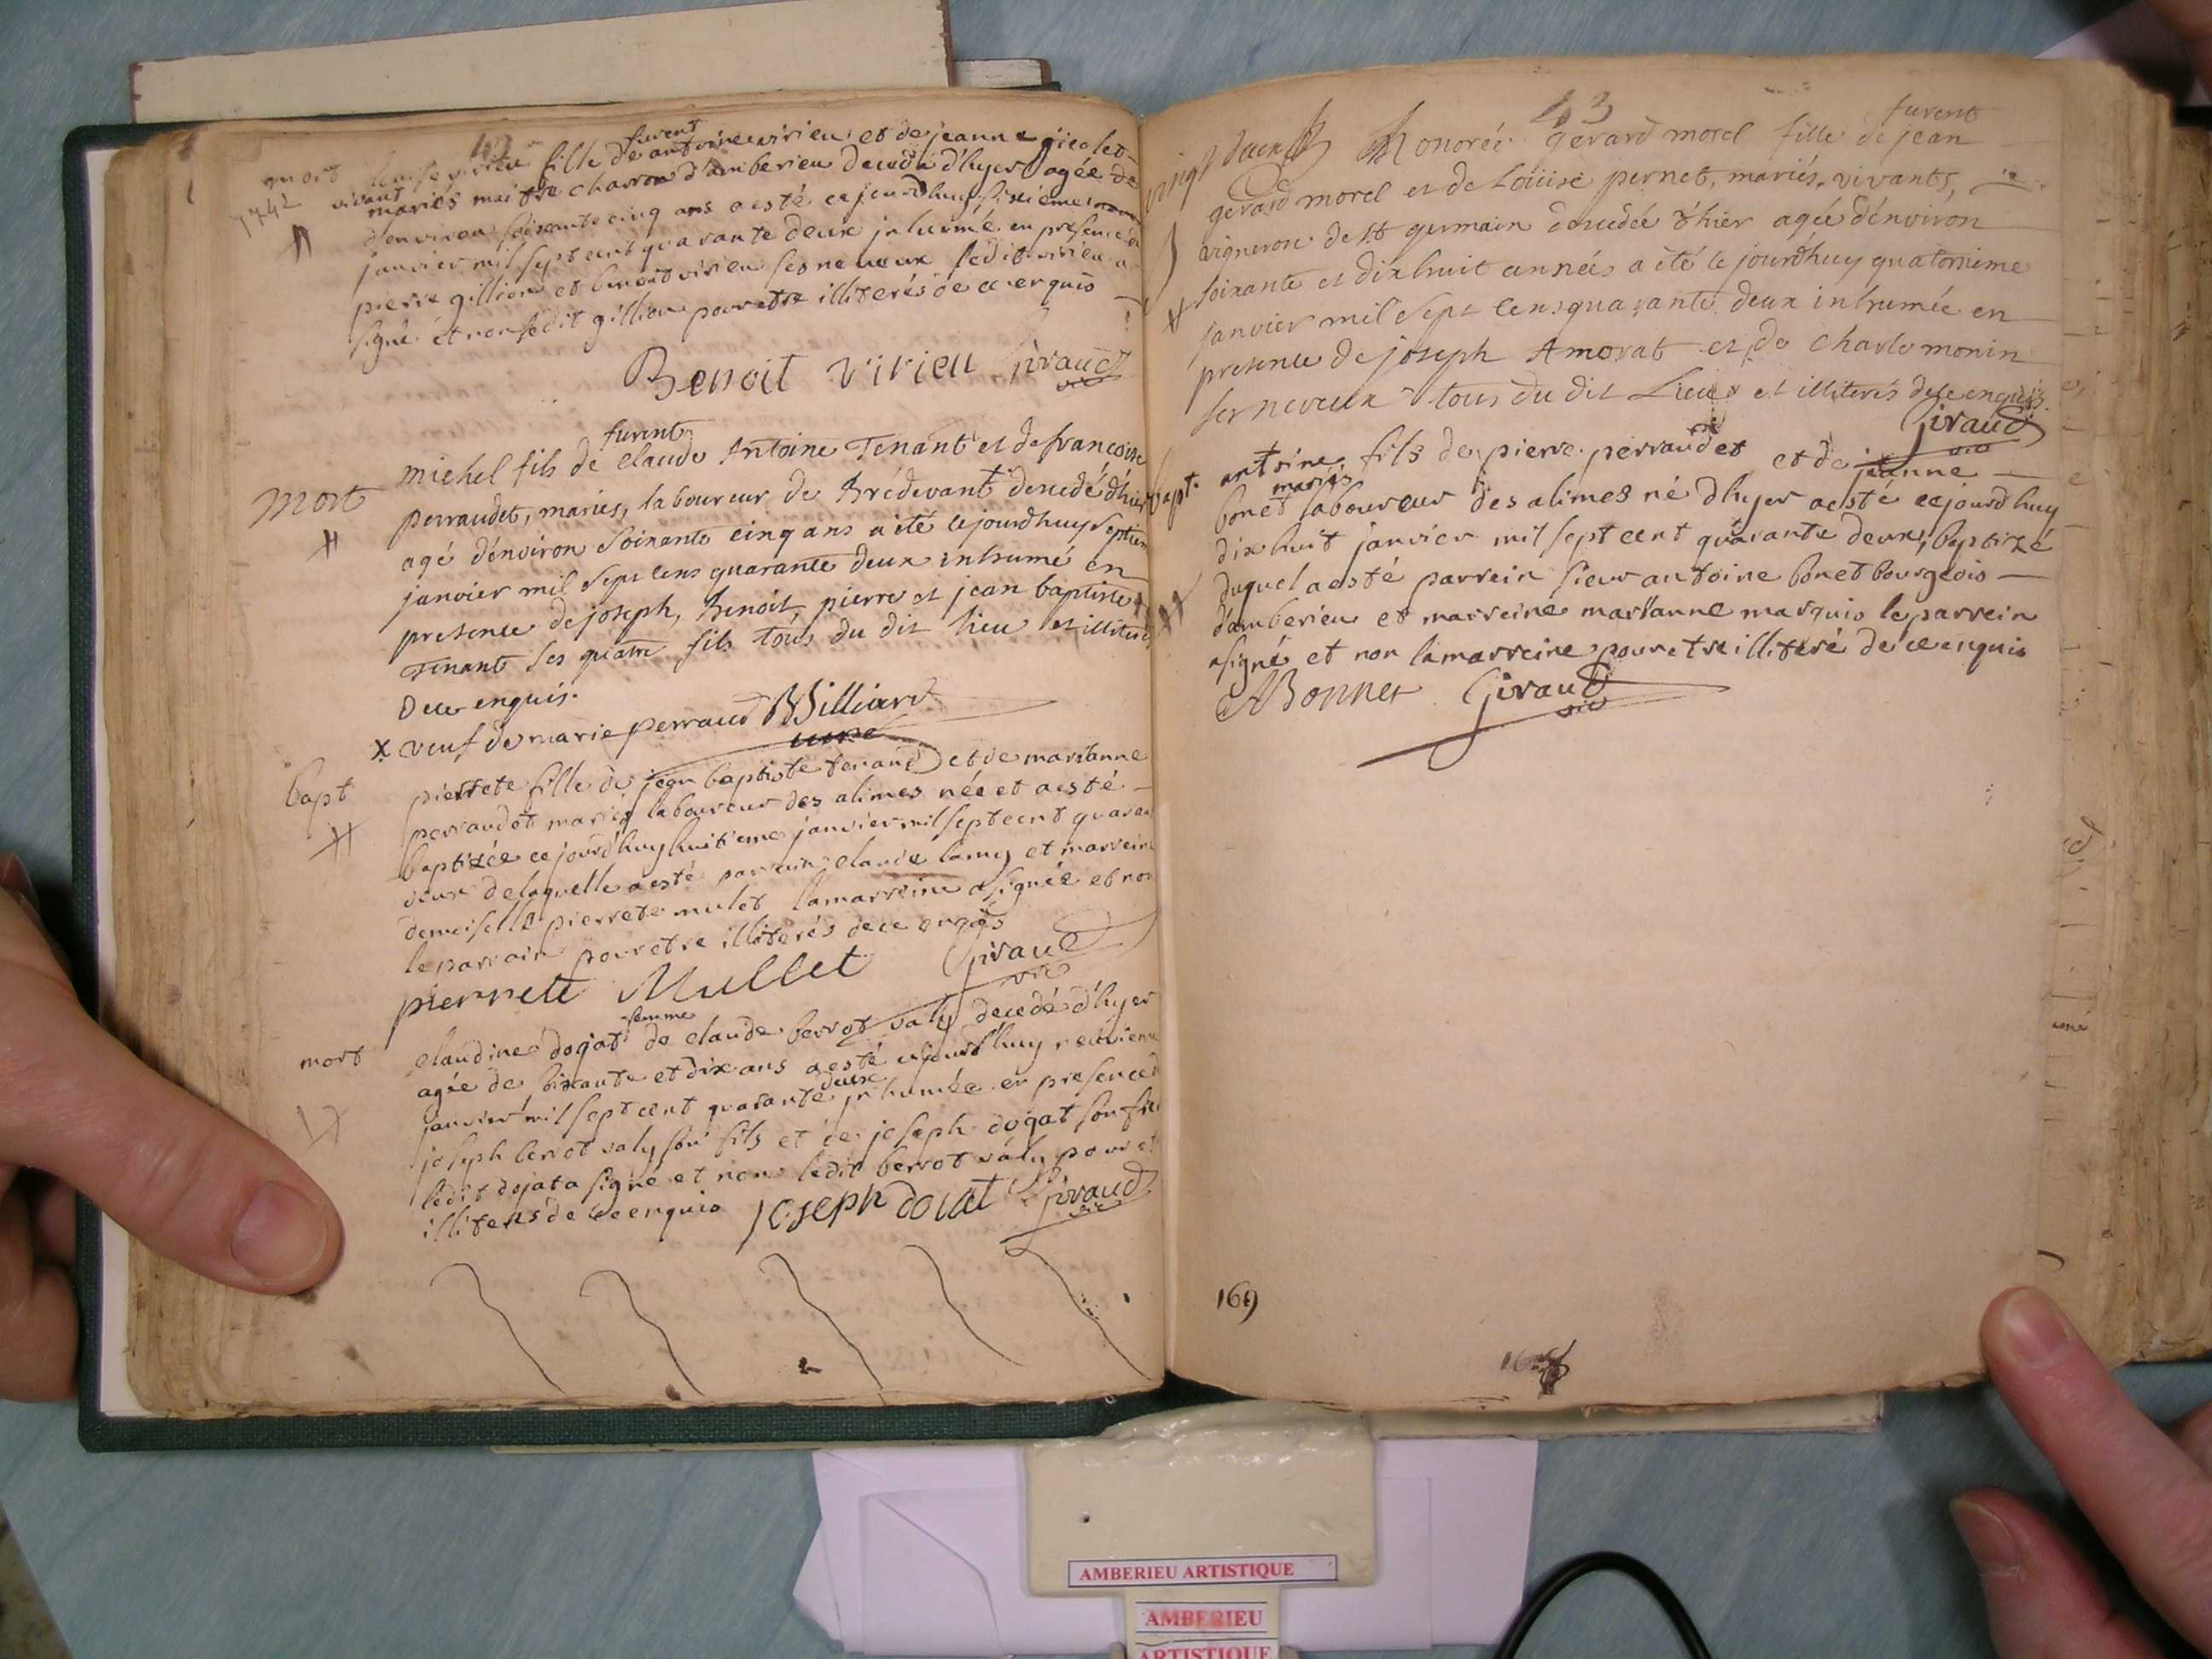 mort
1742
louise virieu fille de furent antoine virieu et de jeanne
vivant mariés maitre charron d'amberieu decedée d'hyer agée de
d'environ soixante cinq ans a esté ce jourd'huy sixième
janvier mil sept cent quarante deux inhumé en presence de
pierre gillion et benoit virieu ses neveux ledit virieu a
signé et non ledit gillion pour etre illiterés de ce enquis
Benoit virieu Giraud vic
mort
michel fils de furent claude Antoine Tenant et de francoise
perraudet, mariés, laboureur de Brédevant decedé d'hier
agé d'environ soixante cinq ans a été ce jourdhuy septiem
janvier mil sept cens quarante deux inhumé en
presence de joseph, Benoit, pierre et jean baptiste
Tenant ses quatre fils tous du dit lieu et illiterés
de ce enquis.
x veuf de marie perraud Billiard
curé
bapt
pierrete fille de jean baptiste tenand et de marianne
perraudet mariés laboureur des alimes née et a esté
baptizée ce jourd'huy huitieme janvier mil sept cent quaran
deux de laquelle a esté parrain claude lamy et marreine
demoiselle pierrete mulet la marreine a signée et non
le parrain pour etre illiterés de ce enquis
pierrete Mullet Giraud vic
mort
claudine dogat femme de claude berrot valy decedé d'hyer
agée de soixante et dix ans a esté ce jourd'huy neuvieme
janvier mil sept cent quarante deux inhumée en presence d
joseph berrot valy son fils et de joseph dogat son fre
ledit dojat a signé et non ledit berrot valy pour et
illiterés de ce enquis joseph doiat Giraud vic
43
vingt deux
honorée gerard morel fille de furent jean
gerard morel et de Loüise pernet, mariés, vivants,
vigneron de st germain decedée d'hier agée d'environ
soixante et dix huit années a été ce jourdhuy quatorzieme
janvier mil sept cens quarante deux inhumée en
presence de joseph Amorat et de charle monin
ses neveux tous du dit Lieu et illiterés de ce enquis.
Giraud vic
bapt.
antoine fils de pierre perraudet et de jeanne
bonet mariés laboureur des alimes né d'hyer a esté ce jourd'huy
dix huit janvier mil sept cent quarante deux, baptizé
duquel a esté parrein sieur antoine bonet bourgeois
d'amberieu et marreine marianne marquis le parrein
a signé et non la marreine pour etre illiteré de ce enquis
ABonnet Giraud vic
169
AMBERIEU ARTISTIQUE
AMBERIEU
ARTISTIQUE